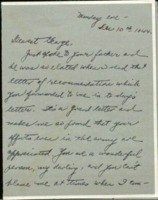 Monday eve -
Dec 10th, 1944.
Dearest George,
Just spoke to your father and
he was so elated when he read that
letter of recommendation which
you forwarded to me in today's
letter. It's a great letter and
makes me so proud that your
efforts even in the army are
appreciated. You are a wonderful
person, my darling. And you can't
blame me at times when I